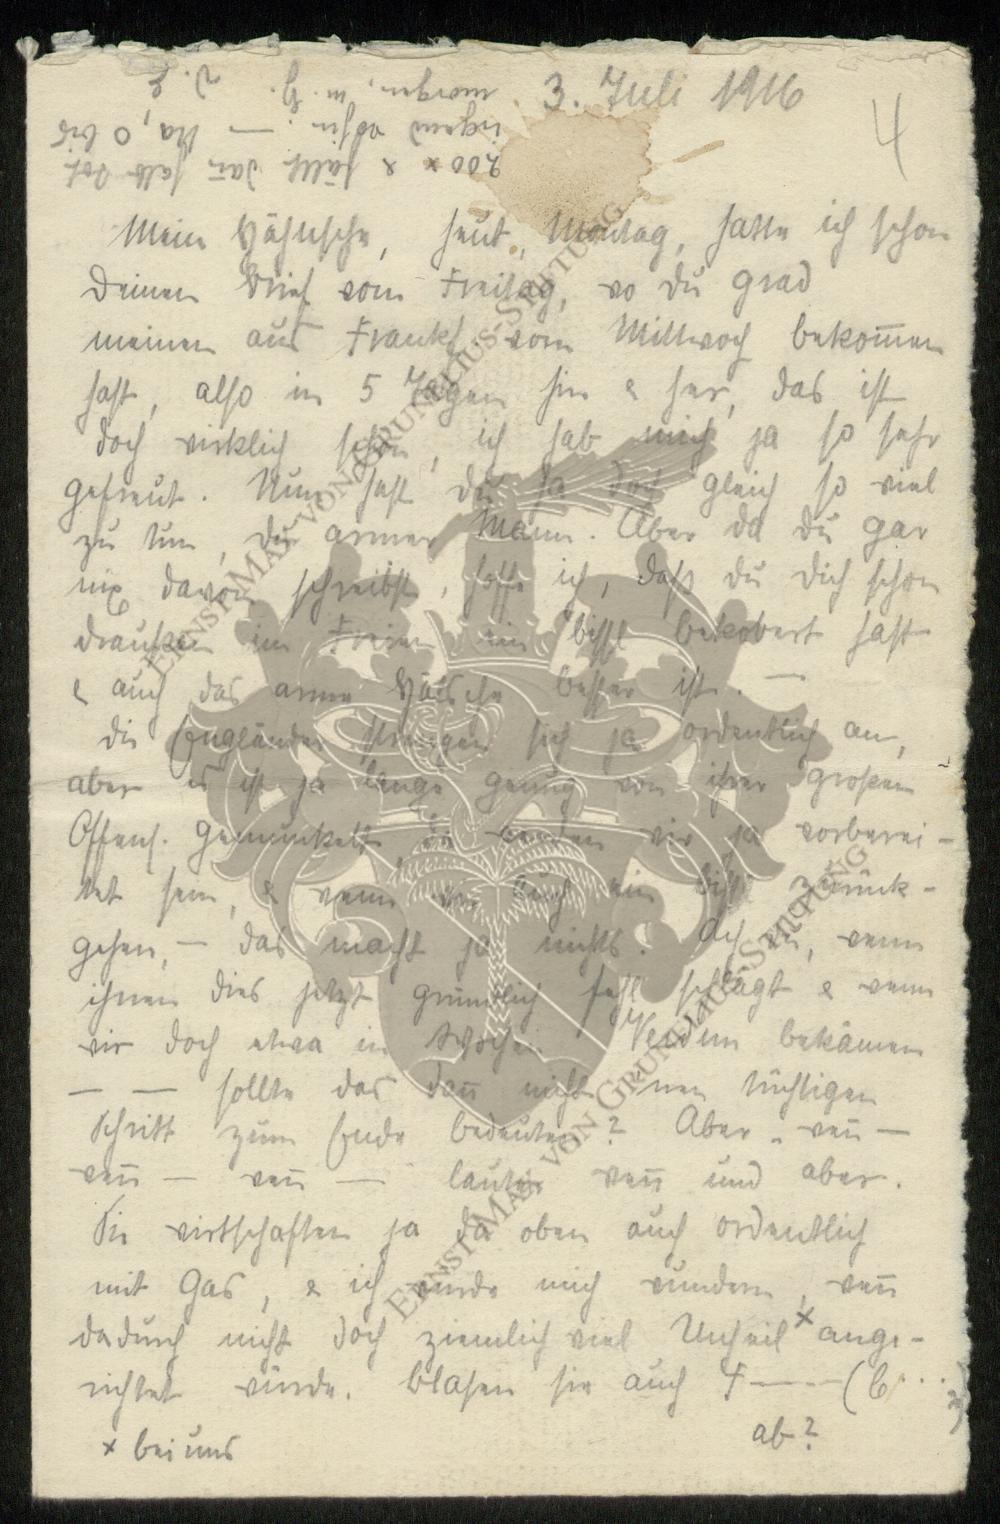 3. Juli 1916
4
200 x & fällt dan̄ halb tot
irgend wohin. — Na, O bis
morgen, m. H. D. L
Mein Hähnsche, heut, Montag, hatte ich schon
Deinen Brief vom Freitag, wo Du grad
meinen aus Frankf. vom Mittwoch bekom̄en
hast, also in 5 Tagen hin & her, das ist
doch wirklich schön, ich hab mich ja so sehr
gefreut. Nun hast du ja doch gleich so viel
zu tun, du armer Mann. Aber da du gar
nix davon schreibst, hoffe ich, daß du Dich schon
draußen im Freien ein bissl bekobert hast
& auch das arme besser ist. —
Die Engländer strengen sich ja ordentlich an,
aber es ist ja lange genug von ihrer großen
Offens. gemunkelt, da werden wir ja vorberei-
tet sein, & wenn wir auch ein biss zurück-
gehen, — das macht ja nichts. Ach nu, wenn
ihnen dies jetzt gründlich fehl schlägt & wenn
wir doch etwa in Wochen Verdun bekämen
— — sollte das dan̄ nicht einen tüchtigen
Schritt zum Ende bedeuten? Aber wen̄ —
wen̄ — wen̄ — lauter wen̄ und aber.
Sie wirtschaften ja da oben auch ordentlich
mit Gas, & ich würde mich wundern, wen̄
dadurch nicht doch ziemlich viel Unheil x ange-
richtet würde. Blasen sie auch F---- (b...
ab?
x bei uns